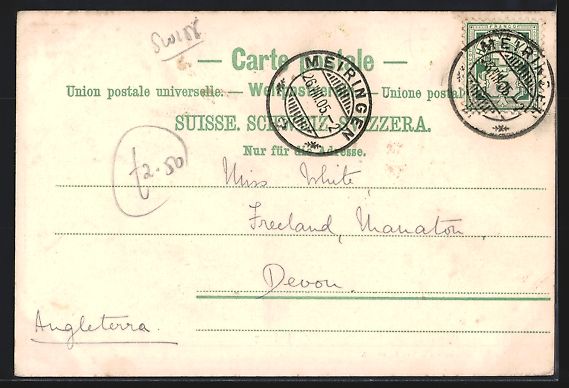 SWISS
— Carte postale —
Union postale universelle. — Weltpostverein. — Unione postale
SUISSE. SCHWEIZ. SVIZZERA.
Nur für die Adresse.
FRANCO
MEIRINGEN
26.VII.05.-2
MEIRINGEN
£2.50
Miss White,
Freeland, Manaton,
Devon.
Angleterra.